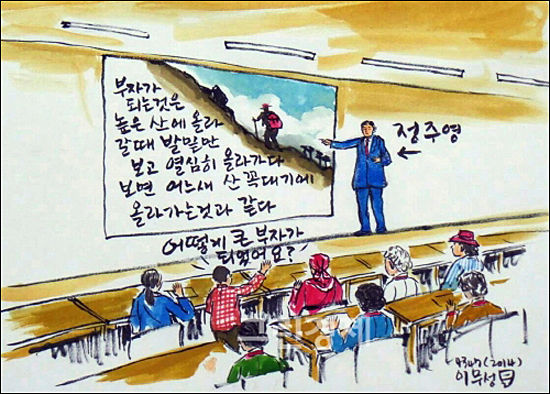 부자가
되는것은
높은 산에 올라
갈때 발밑만
보고 열심히 올라가다
보면 어느새 산꼭대기에
올라가는것과 같다
정주영
어떻게 큰 부자가
되었어요?
(2014)
이무성